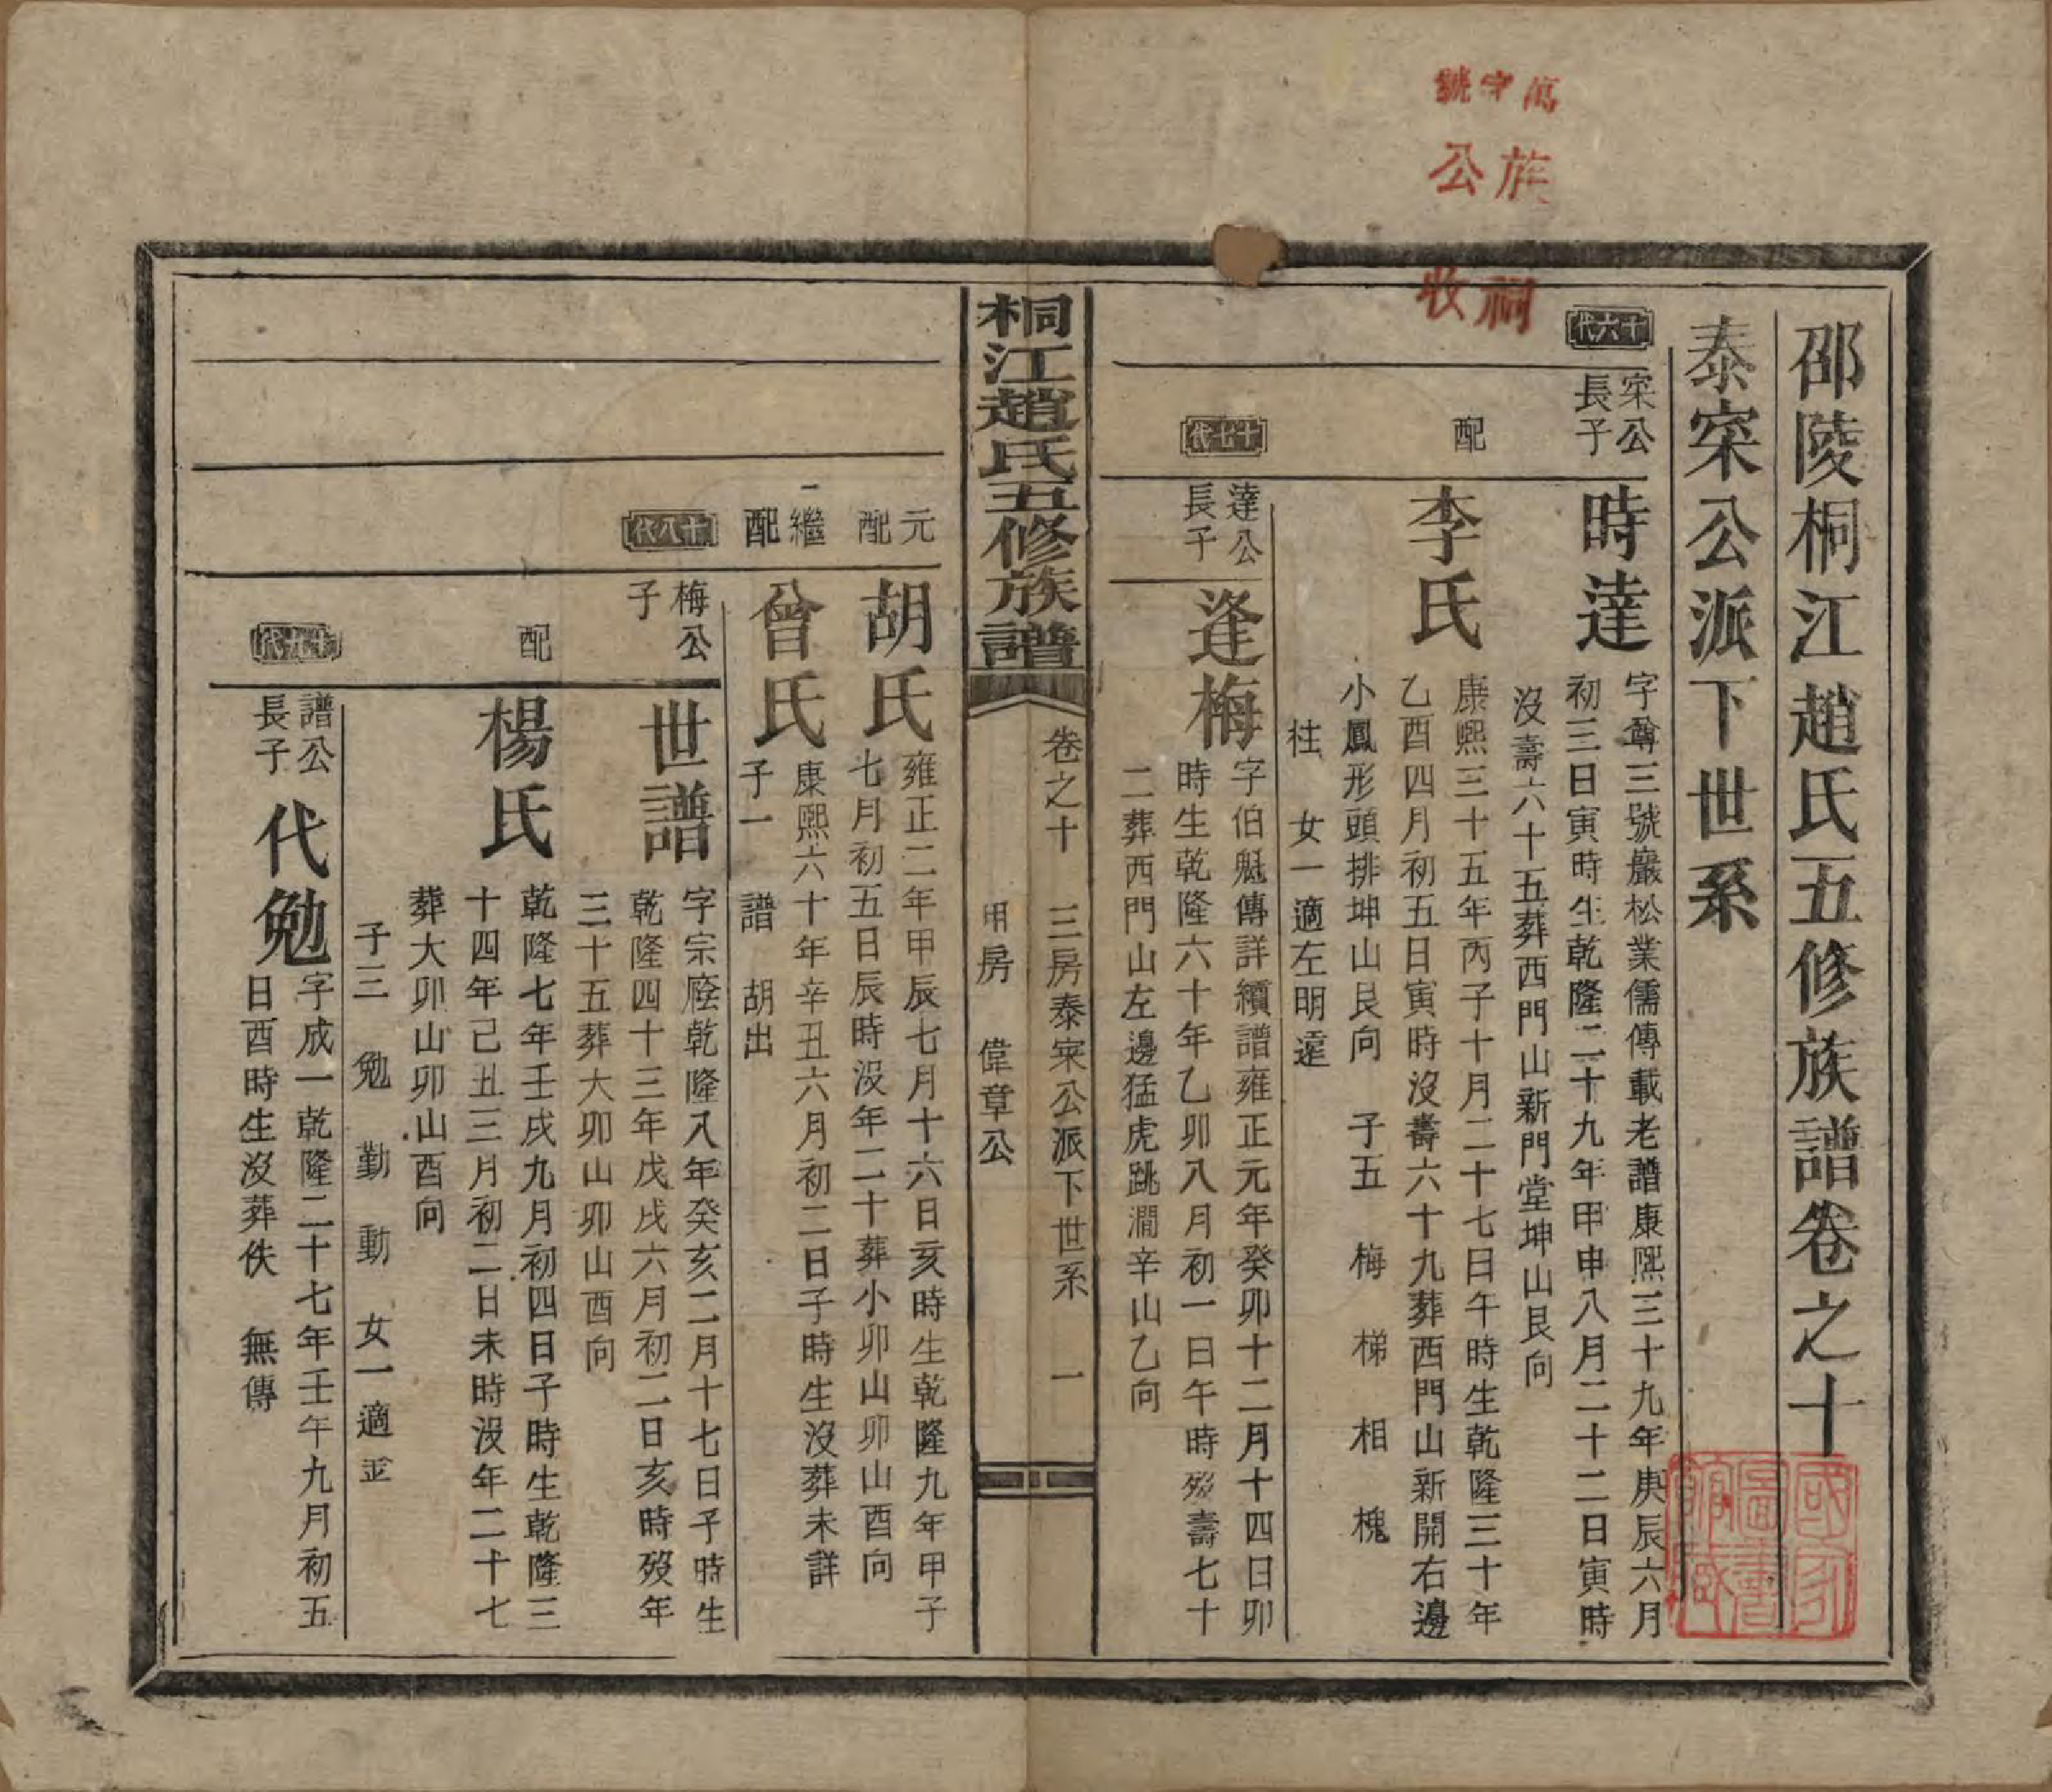 萬字號
族公
祠收
邵陵桐江趙氏五修族譜卷之十
泰寀公派下世系
十六代
寀公
長子
時達
字尊三號巖松業儒傳載老譜康熙三十九年庚辰六月
初三日寅時生乾隆二十九年甲申八月二十二日寅時
沒壽六十五葬西門山新門堂坤山艮向
配
李氏
康熙三十五年丙子十月二十七日午時生乾隆三十年
乙酉四月初五日寅時沒壽六十九葬西門山新開右邊
小鳳形頭排坤山艮向 子五 梅 梯 相 槐
柱 女一適左明遠
十七代
達公
長子
逢梅
字伯魁傳詳續譜雍正元年癸卯十二月十四日卯
時生乾隆六十年乙卯八月初一日午時歿壽七十
二葬西門山左邊猛虎跳澗辛山乙向
桐江趙氏五修族譜
卷之十 三房泰寀公派下世系 一
甲房 偉章公
元配
胡氏
雍正二年甲辰七月十六日亥時生乾隆九年甲子
七月初五日辰時沒年二十葬小卯山卯山酉向
一繼配
曾氏
康熙六十年辛丑六月初二日子時生沒葬未詳
子一 譜 胡出
十八代
梅公
子
世譜
字宗廕乾隆八年癸亥二月十七日子時生
乾隆四十三年戊戌六月初二日亥時歿年
三十五葬大卯山卯山酉向
配
楊氏
乾隆七年壬戌九月初四日子時生乾隆三
十四年己丑三月初二日未時沒年二十七
葬大卯山卯山酉向
子三 勉 勤 動 女一適
十九代
譜公
長子
代勉
字成一乾隆二十七年壬午九月初五
日酉時生沒葬佚 無傳
國家圖書館藏